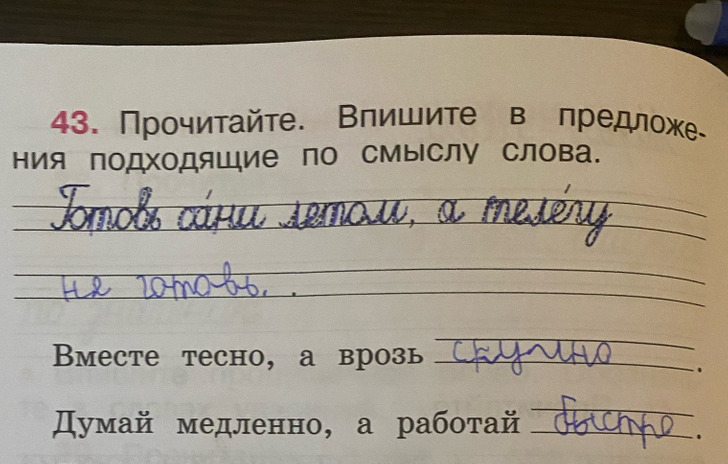 43. Прочитайте. Впишите в предложе-
ния подходящие по смыслу слова.
Готовь са́ни летом, а теле́гу
не готовь. .
Вместе тесно, а врозь скучно.
Думай медленно, а работай быстро.